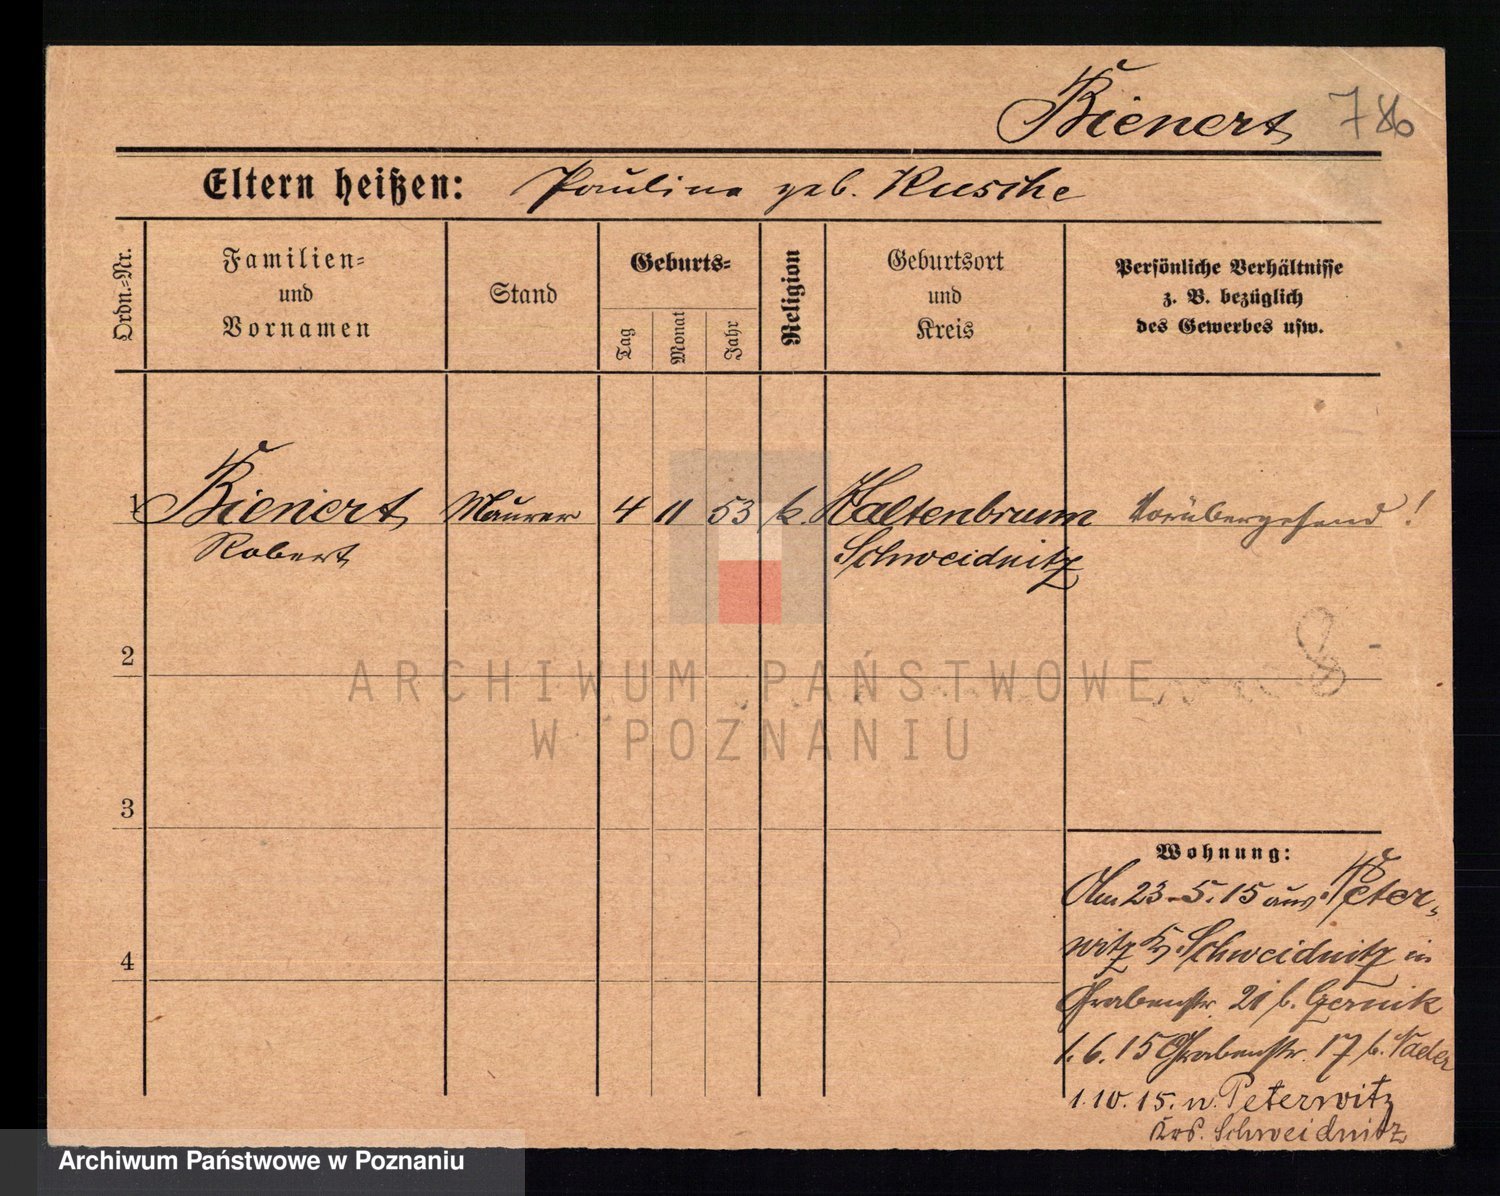 Bienert 786
Eltern heißen: Paulina geb. Kusche
Ordn.-Nr.
Familien-
und
Vornamen
Stand
Geburts-
Tag
Monat
Jahr
Religion
Geburtsort
und
Kreis
Persönliche Verhältnisse
z. B. bezüglich
des Gewerbes usw.
1 Bienert Maurer 4 11 53 k. Kaltenbrunn Vorübergehend!
Robert Schweidnitz
2
3
4
Wohnung:
Am 23.5.15 aus Peter-
witz Kr. Schweidnitz in
Grabenstr. 21 b.
1.6.15 Grabenstr. 17 b.
1.10.15. n. Peterwitz
Krs. Schweidnitz
ARCHIWUM PAŃSTWOWE
W POZNANIU
Archiwum Państwowe w Poznaniu